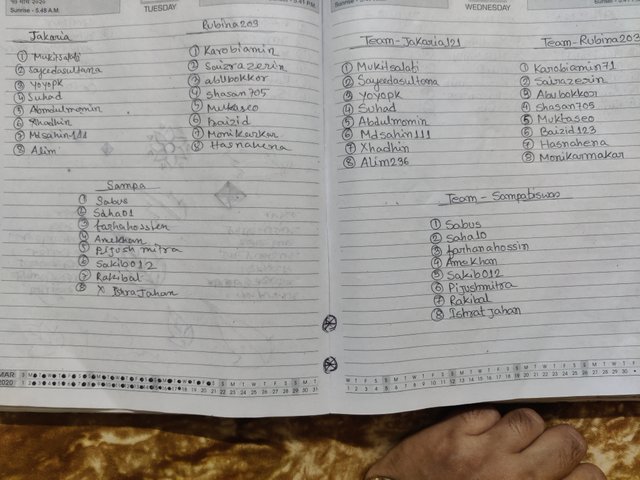 Sunrise - 5.48 A.M.
TUESDAY
Jakaria
① Mukitsalati
② Sayeedasultana
③ Yoyopk
④ Suhad
⑤ Abmdulmomin
⑥ Xhadhin
⑦ Mdsahin111
⑧ Alim
Rubina203
① Karobiamin
② Sairazerin
③ abubokkor
④ shasan705
⑤ Muktaseo
⑥ Baizid
⑦ Monikankar
⑧ Hasnahena
Sampa
① Sabus
② Saha01
③ farhahosster
④ Amekhan
⑤ Pijush mitra
⑥ Sakib012
⑦ Rakibal
⑧ X IshraJahan
MAR
2020
WEDNESDAY
Sunrise - 5.47 A.M.
Team-Jakaria121
① Mukitsalati
② Sayeedasultana
③ Yoyopk
④ Suhad
⑤ Abdulmomin
⑥ Mdsahin111
⑦ Xhadhin
⑧ Alim236
Team-Rubina203
① Karobiamin71
② Sairazerin
③ Abubokkor
④ Shasan705
⑤ Muktaseo
⑥ Baizid123
⑦ Hasnahena
⑧ Monikarmakar
Team - Sampabiswas
① Sabus
② Saha10
③ farhanahossin
④ Amekhan
⑤ Sakib012
⑥ Pijushmitra
⑦ Rakibal
⑧ Ishratjahan